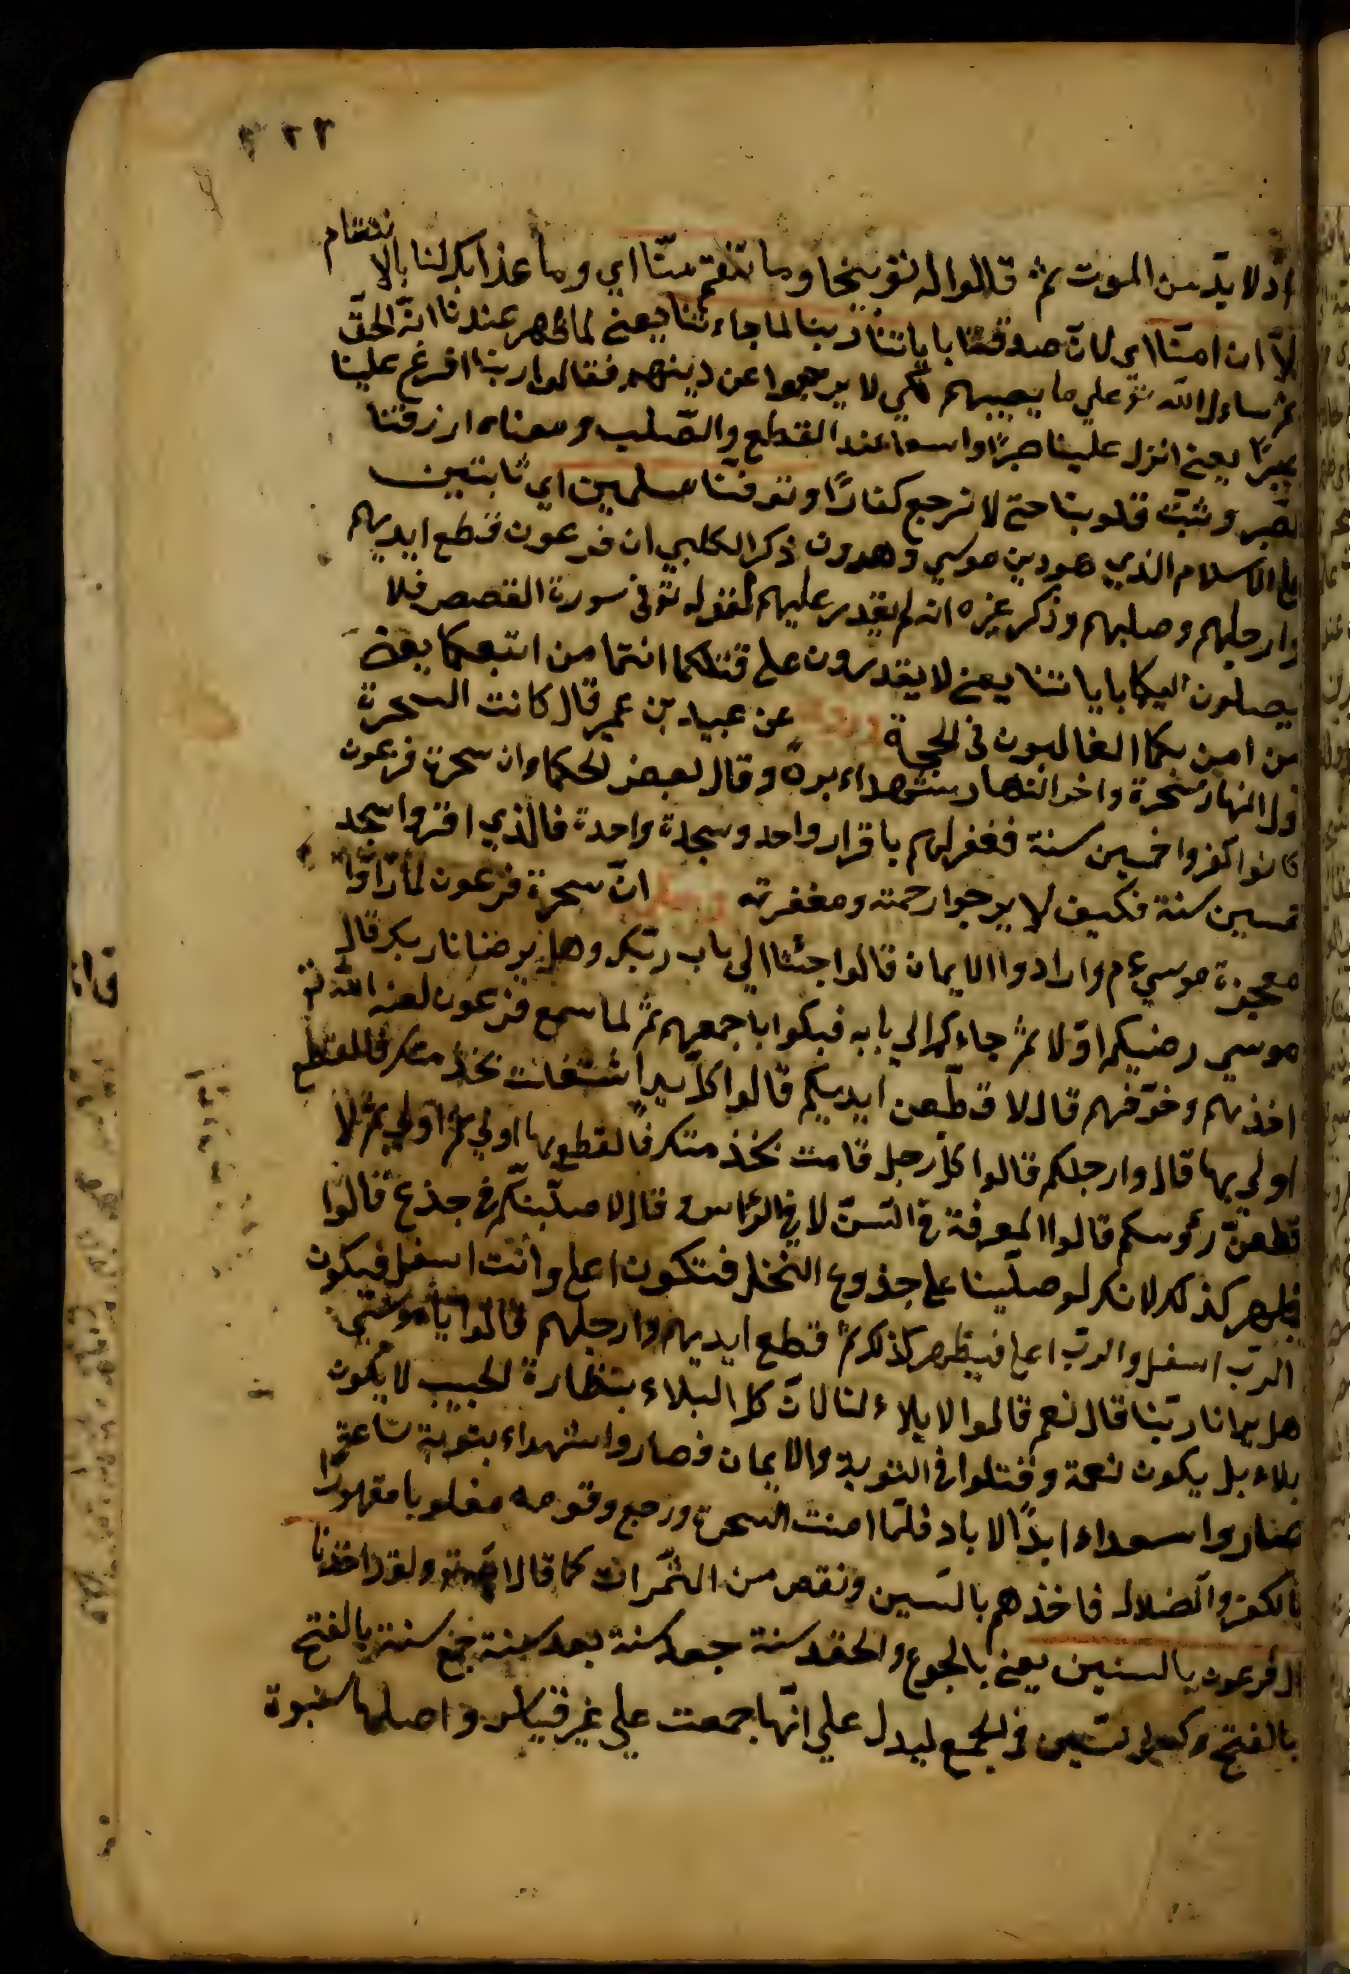 ٣٢٢
اذ لا بدّ من الموت ثم قالوا له توبيخا وما تنقم منّا اي وما عذابك لنا بالانتقام
الّا ان امنّا اي لانّ صدقنا بايات ربنا لما جاءتنا يعني لما ظهر عندنا انّه الحقّ
ثم ساءلوا الله تع على ما يصيبهم لكي لا يرجعوا عن دينهم فقالوا ربنا افرغ علينا
صبرًا يعني انزل علينا صبرًا واسعا عند القطع والصّلب ومعناه ارزقنا
الصّبر وثبّت قلوبنا حتى لا نرجع كفارًا وتوفّنا مسلمين اي ثابتين
على الاسلام الذي هو دين موسي وهرون ذكر الكلبي ان فرعون قطع ايديهم
وارجلهم وصلبهم وذكر غيره انه لم يقدر عليهم لقوله تع في سورة القصص فلا
يصلون اليكما باياتنا يعني لا يقدرون على قتلكما انتما من اتبعكما يعني
من امن بكما الغالبون في الحجة وروي عن عبيد بن عمير قال كانت السحرة
اول النهار سحرة واخر النهار شهداء بررة وقال بعض الحكماء ان سحرة فرعون
كانوا كفروا خمسين سنة فغفر لهم باقرار واحد وسجدة واحدة فالذي اقر واسجد
خمسين سنة فكيف لا يرجوا رحمته ومغفرته انّ سحرة فرعون لما رأوا
معجزة موسي ع م وارادوا الايمان قالوا جئنا الي باب ربّك وهل يرضانا ربك قال
موسي رضيكم اوّلا ثم جاءكم الي بابه فبكوا باجمعهم ثم لما سمع فرعون لعنه الله تع
اخذهم وخوّفهم قال لاقطّعن ايديكم قالوا كلّ يد استغاث بخذ منك فالقطع
اولي بها قال وارجلكم قالوا كل رجل قامت بخذ منك فالقطع بها اولي ثم قال لا
قطعنّ رؤسكم قالوا المعرفة في السّرّ لا في الرأس قال لاصلّبنّكم في جذع قالوا
فلهر كذلك لانك لو صلّبنا على جذوع النخل فنكون اعلي وانت اسفل فيكون
الربّ اسفل والربّ اعلي فيظهر كذلك ثم قطع ايديهم وارجلهم قالوا يا موسي
هل يرانا ربّنا قال نعم قالوا لا بلاء لنا لانّ كل البلاء بنظارة الحبيب لا يكون
بلاء بل يكون نعمة وقتلوا في التوبة والايمان فصاروا شهداء بتوبة ساعة
صاروا سعداء ابدًا الاباد فلمّا امنت السحرة ورجع وقومه مغلوبا مقهورًا
بالكفر والضلال فاخذهم بالسنين ونقص من الثّمرات كما قال الله تع ولقد اخذنا
ال فرعون بالسنين يعني بالجوع والحقد سنة جعد سنة بعد سنة جمع سنة بالفتح
بالفتح وكسر السّين في الجمع ليدل علي انّها جمعت علي غير قياس واصلها سنوة